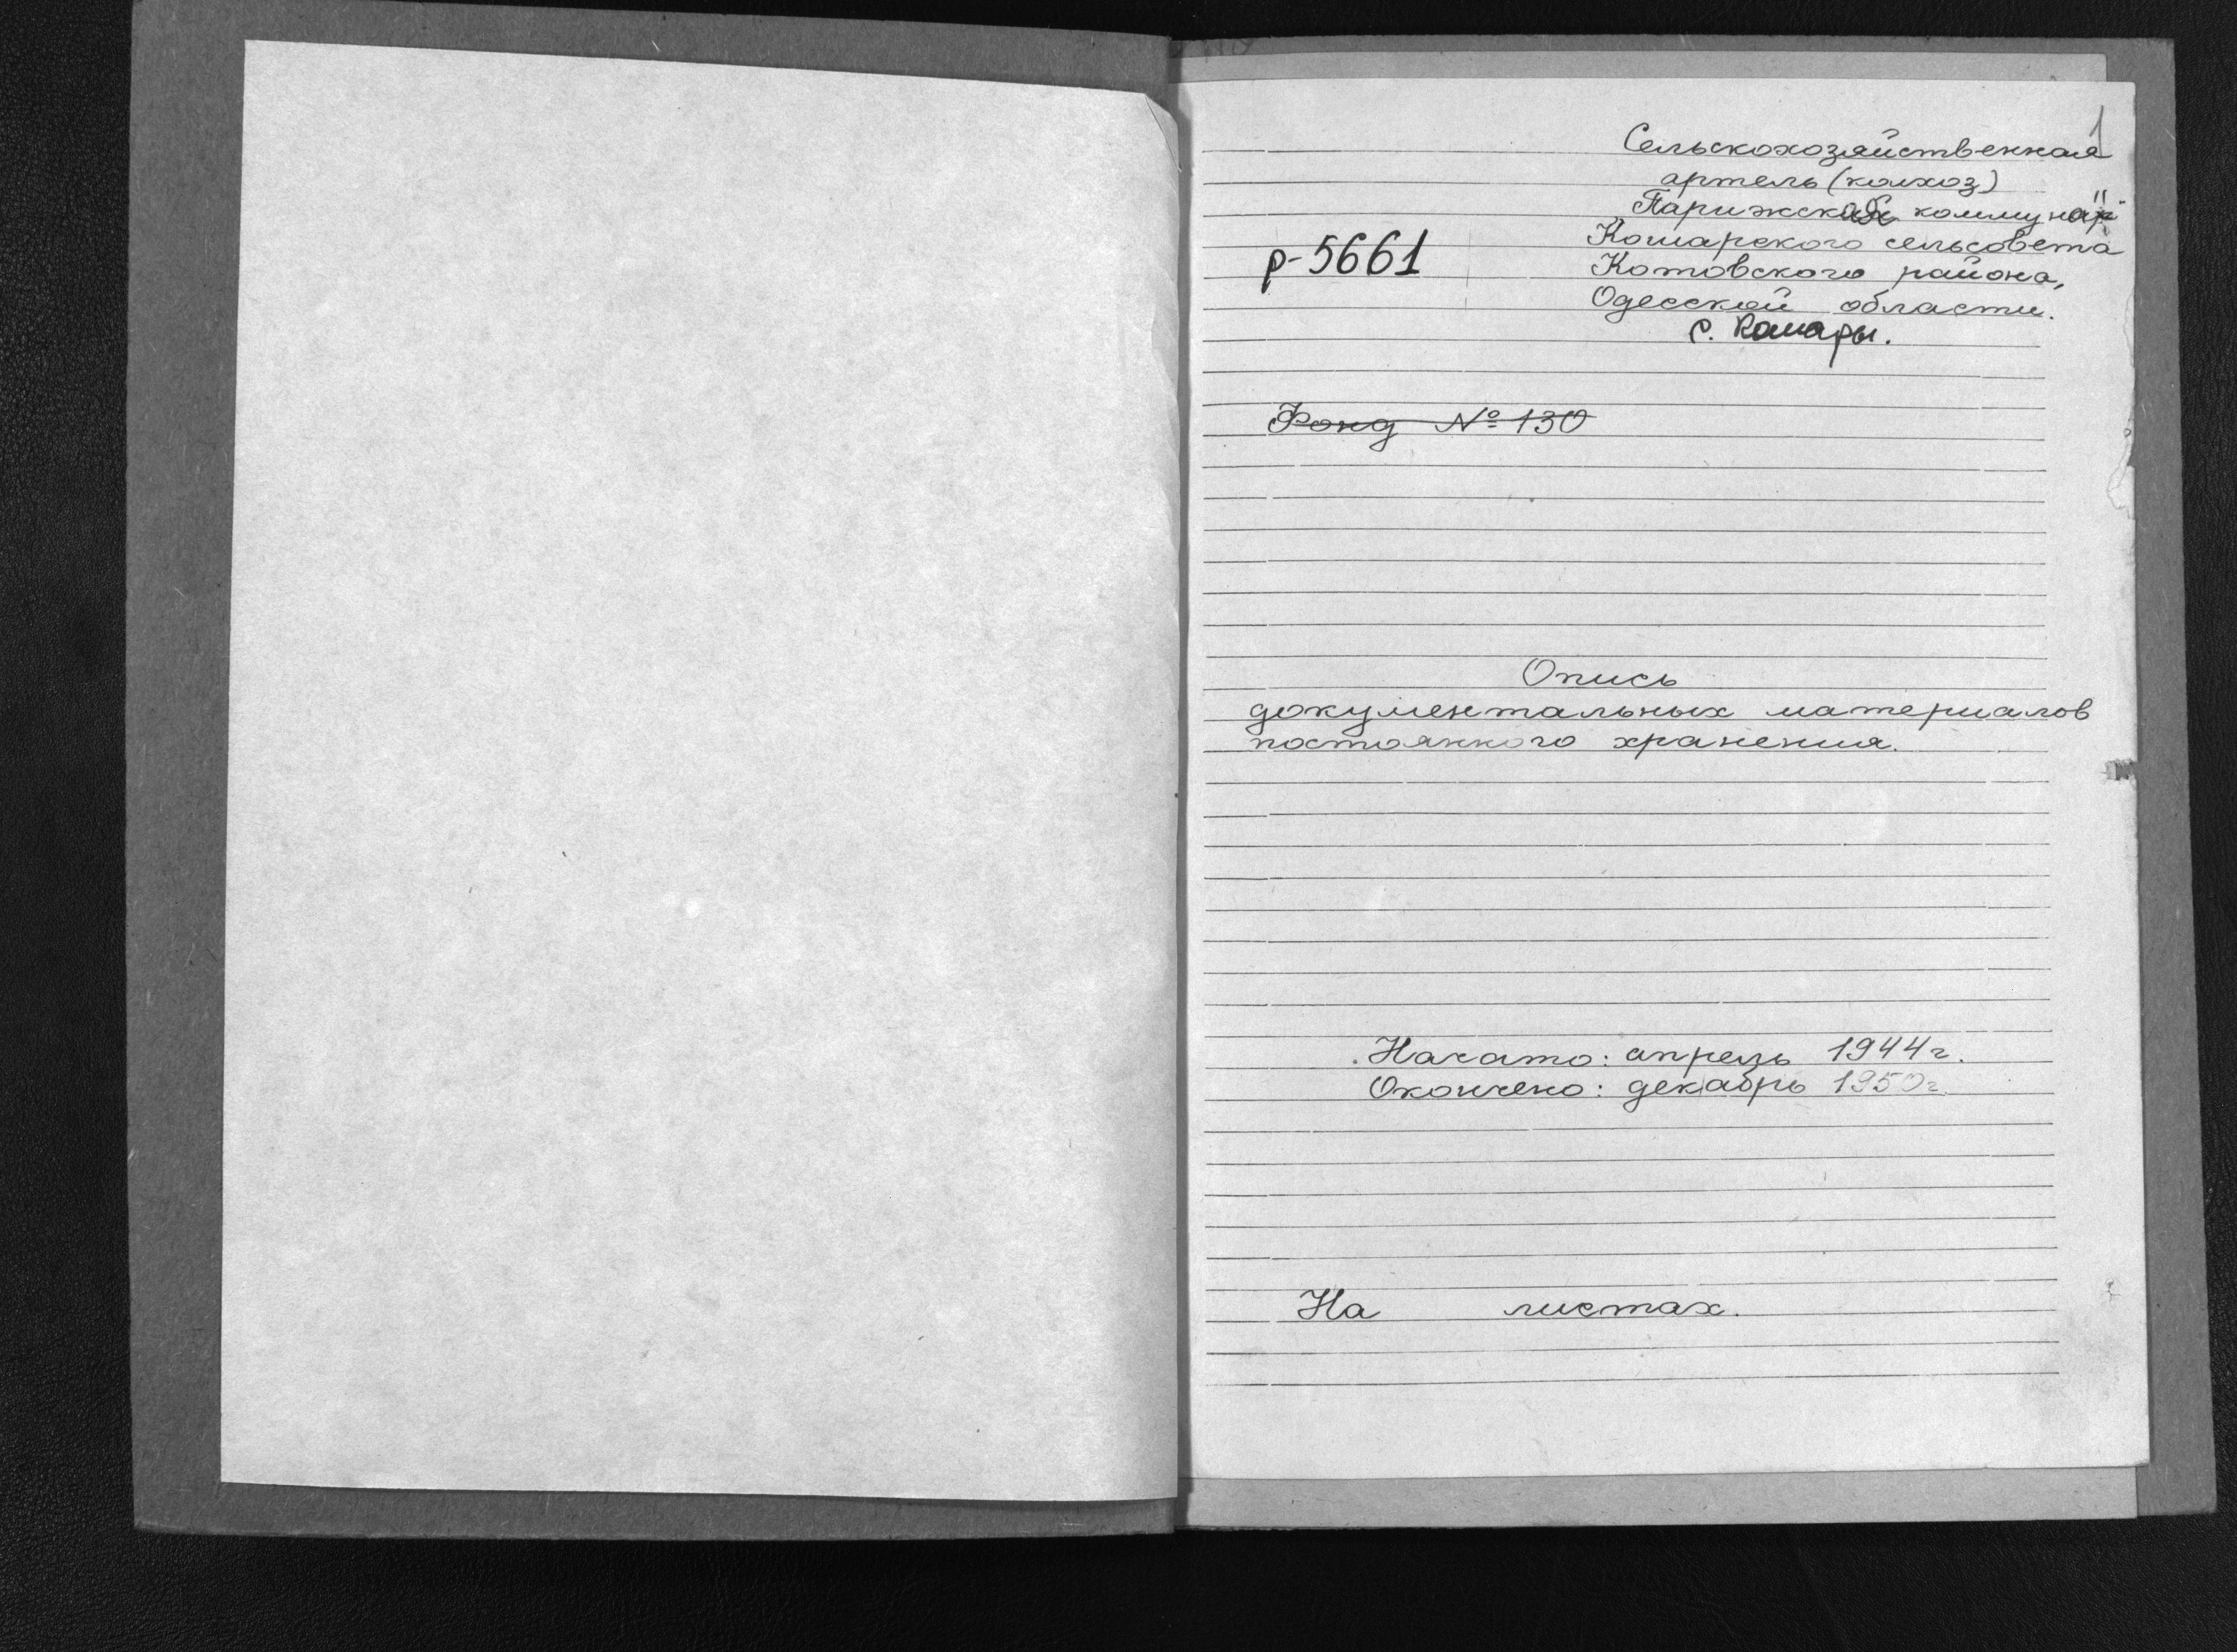 1
Сельскохозяйственная
артель (колхоз)
Парижская коммуна"
Кошарского сельсовета
р-5661
Котовского района,
Одесской области.
с. Кошары.
Фонд № 130
Опись
документальных материалов
постоянного хранения.
Начато: апрель 1944г.
Окончено: декабрь 1950г.
На листах.